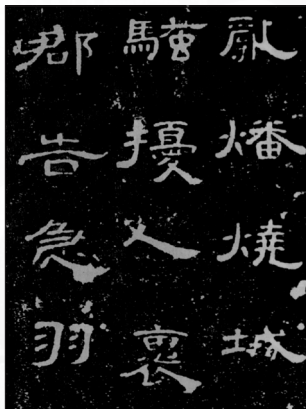 亂燔燒城
騷擾人褱
郡告急羽